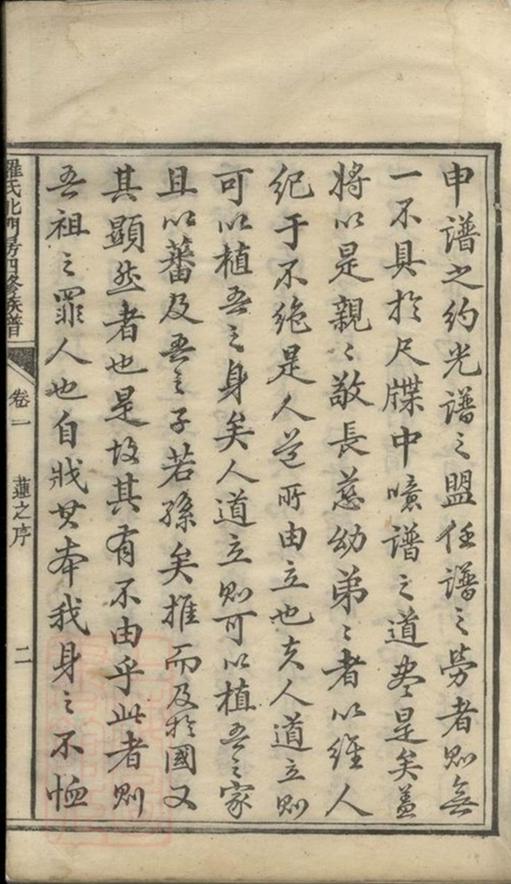 申譜之約光譜之盟任譜之勞者則無
一不具於尺牒中噫譜之道盡是矣蓋
將以是親親敬長慈幼弟弟者以維人
紀于不絶是人道所由立也夫人道立則
可以植吾之身矣人道立則可以植吾之家
且以蕃及吾之子若孫矣推而及於國又
其顯然者也是故其有不由乎此者則
吾祖之罪人也自戕其本我身之不恤
羅氏北門房四修族譜
卷一
蓮之序
二